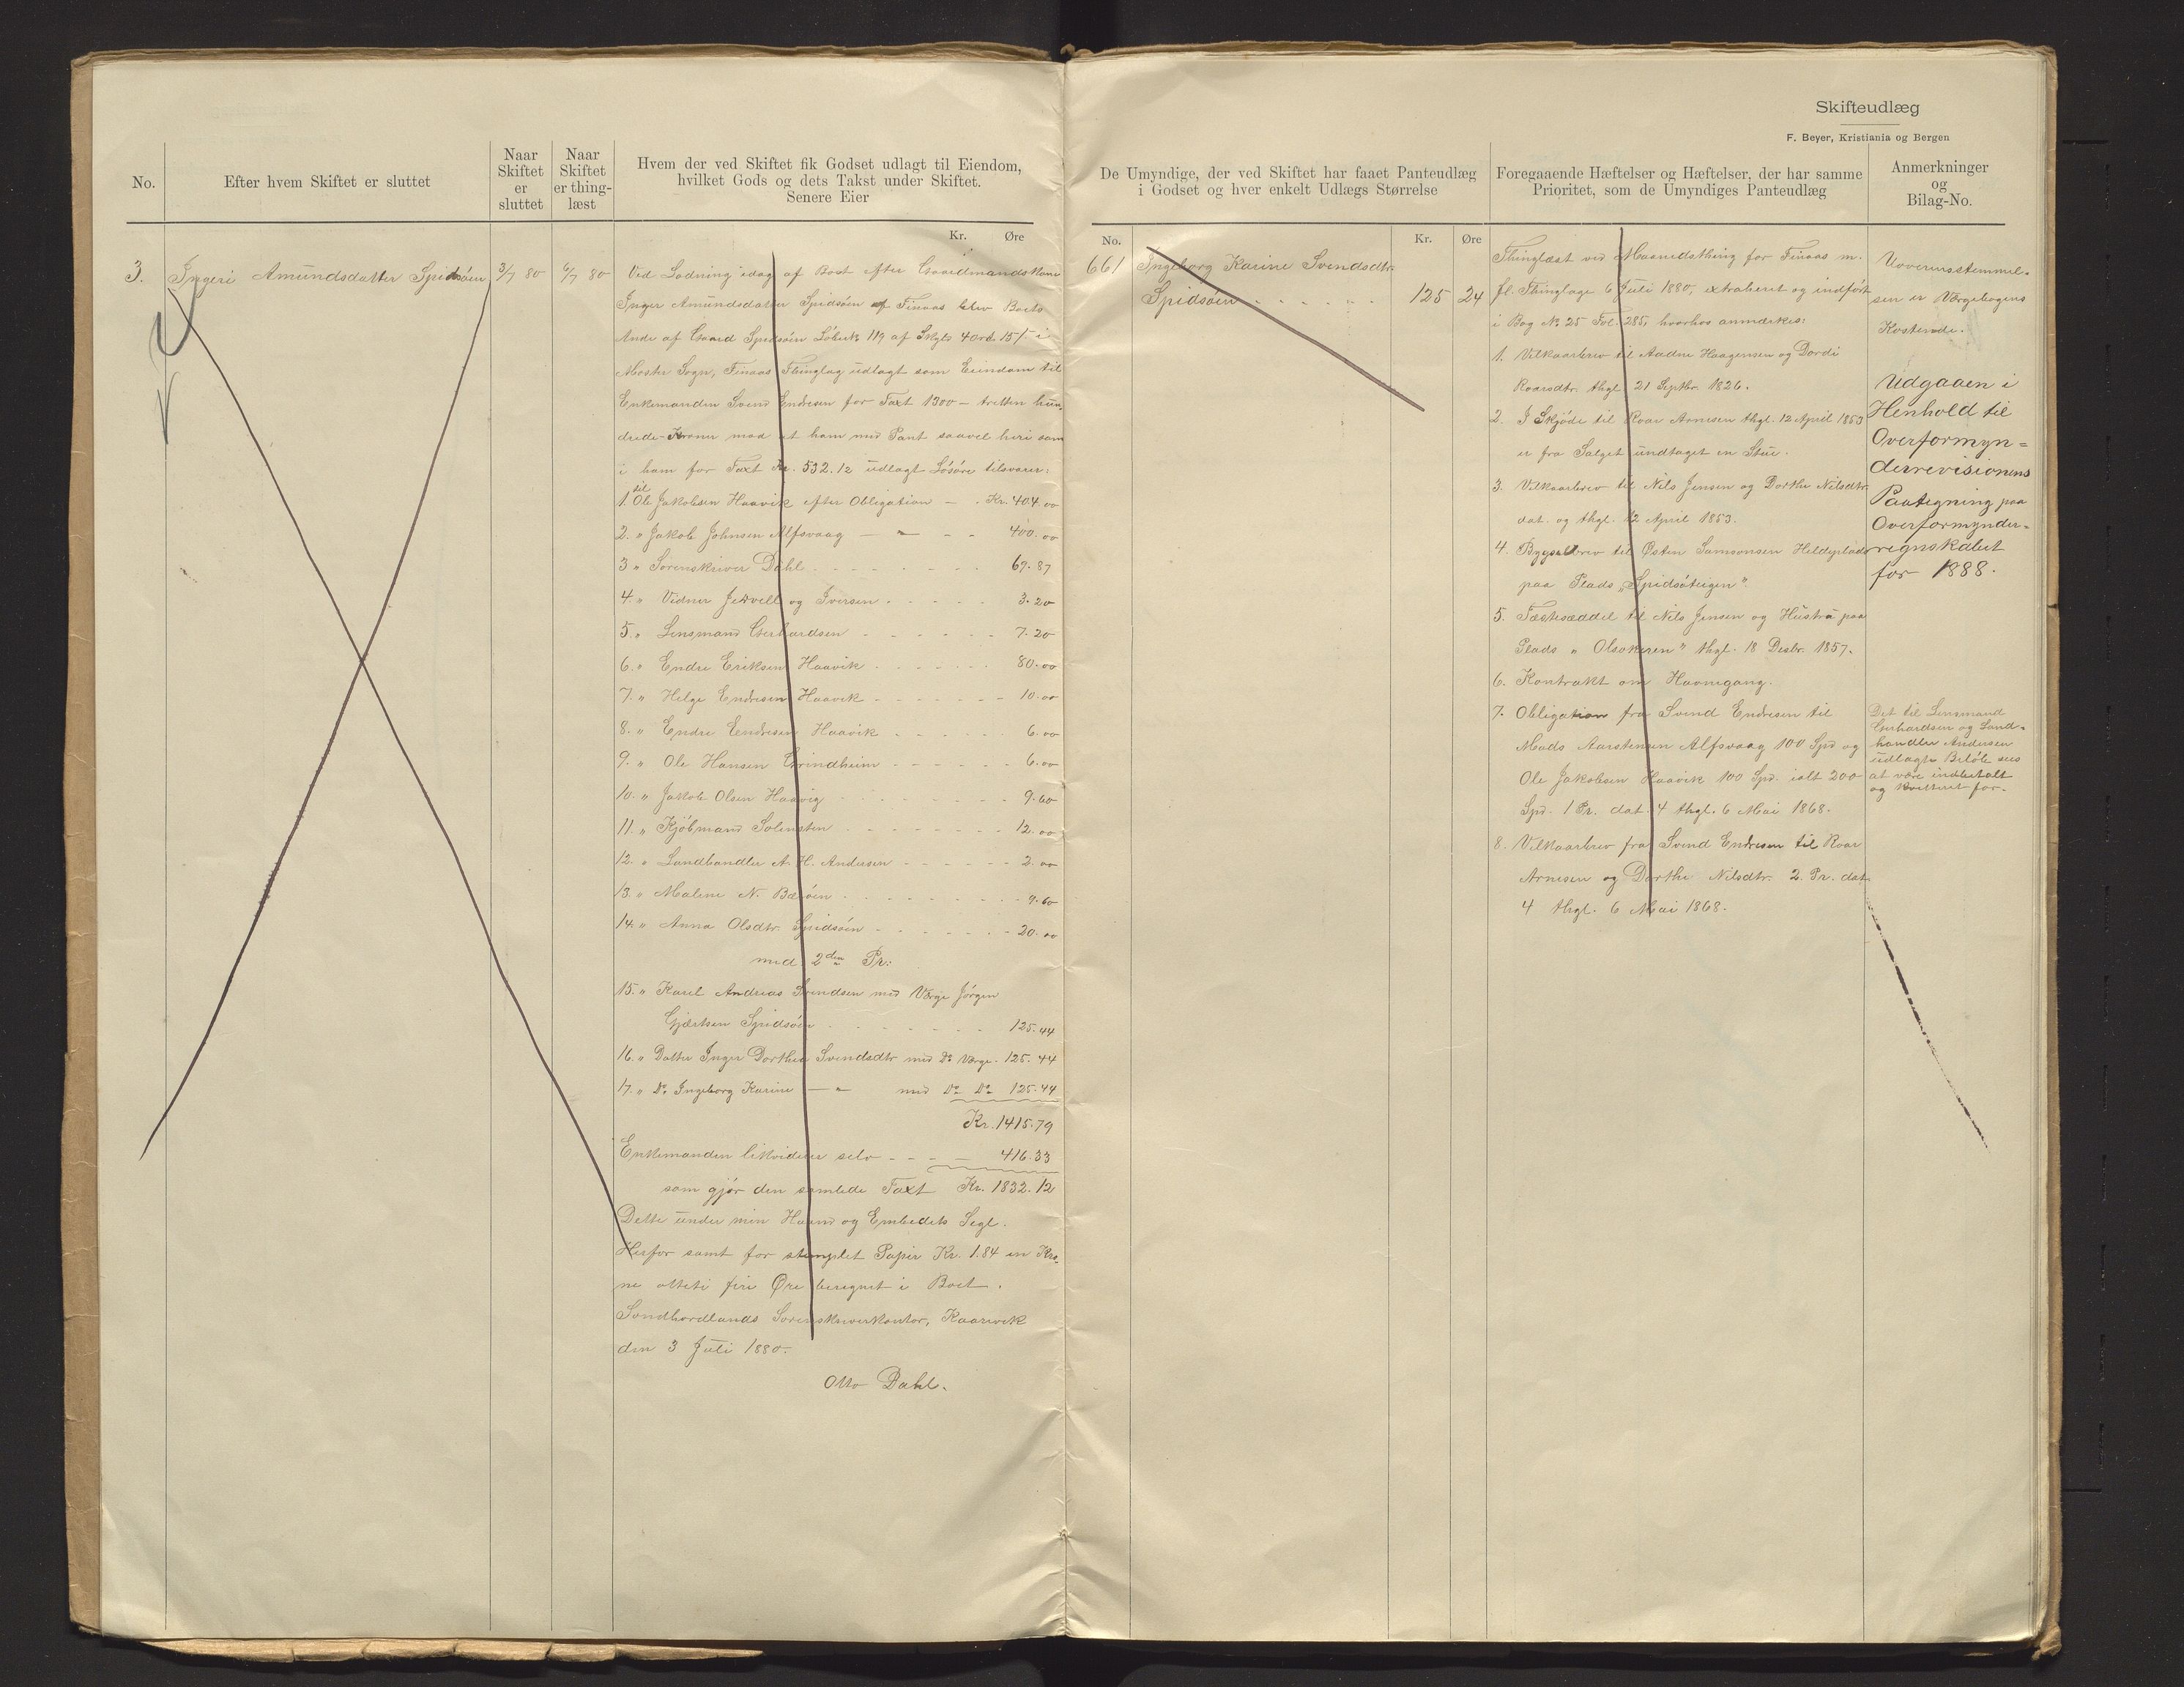 Skifteudlæg
F. Beyer, Kristiania og Bergen
No.
Efter hvem Skiftet er sluttet
Naar
Skiftet
er
sluttet
Naar
Skiftet
er thing-
læst
Hvem der ved Skiftet fik Godset udlagt til Eiendom,
hvilket Gods og dets Takst under Skiftet.
Senere Eier
Kr. Øre
3. Ingeri Amundsdatter Spidsöen 3/7 80 6/7 80
Ved Lodning idag af Boet efter Gaardmandskone
Inger Amundsdatter Spidsöen af Finaas blev Boets
Andel af Gaard Spidsöen Löbenr. 119 af Skyld 4 ord. 15 /- i
Moster Sogn, Finaas Thinglag udlagt som Eiendom til
Enkemanden Svend Endresen for Taxt 1300 - tretten hun-
drede - Kroner mod at ham med Pant saavel heri som
i ham for Taxt Kr. 532.12 udlagt Lösöre tilsvarer:
1. til Ole Jakobsen Haavik efter Obligation - . Kr. 404.00
2. " Jakob Johnsen Alfsvaag — " - - 400.00
3 " Sorenskriver Dahl 69.87
4. " Vidner Jedvell og Iversen 3.20
5. " Lensmand Gerhardsen 7.20
6. " Endre Eriksen Haavik 80.00
7. " Helge Endresen Haavik 10.00
8. " Endre Endresen Haavik 6.00
9. " Ole Hansen Grindheim 6.00
10. " Jakob Olsen Haavig 9.60
11. " Kjöbmand Solensten 12.00
12. " Landhandler A. H. Andersen 2.00
13. " Malene N. 9.60
14. " Anna Olsdtr. Spidsöen 20.00
med 2den Pr:
15. " Karel Andreas Svendsen med Værge Jörgen
Gjertsen Spidsöen 125.44
16. " Datter Inger Dorthea Svendsdtr med Do Værge - 125.44
17. " Do Ingeborg Karine — " med Do Do 125.44
Kr. 1415.79
Enkemanden likviderer selv 416.33
som gjör den samlede Taxt Kr. 1832.12
Dette under min Haand og Embedets Segl.
Herfor samt for stemplet Papir Kr. 1.84 en Kro-
ne otteti fire Øre beregnet i Boet.
Söndhordlands Sorenskriverkontor, Kaarevik
den 3 Juli 1880.
Otto Dahl.
De Umyndige, der ved Skiftet har faaet Panteudlæg
i Godset og hver enkelt Udlægs Størrelse
No. Kr. Øre
661 Ingeborg Karine Svendsdtr.
Spidsöen 125 24
Foregaaende Hæftelser og Hæftelser, der har samme
Prioritet, som de Umyndiges Panteudlæg
Thinglæst ved Maanedsthing for Finaas m.
fl. Thinglage 6 Juli 1880, extraheret og indfört
i Bog No 25 Fol. 285, hvorhos anmærkes:
1. Vilkaarbrev til Aadne Haagensen og Dordi
Roarsdtr. thgl 21 Septbr. 1826.
2. I Skjöde til Roar Arnesen thgl. 12 April 1853
er fra Salget undtaget en Stue.
3. Vilkaarbrev til Nils Jensen og Dorthe Nilsdtr.
dat. og thgl. 12 April 1853.
4. Bygselbrev til Østen Samsonsen
paa Plads „Spidsöteigen".
5. Fæstesæddel til Nils Jensen og Hustru paa
Plads „ Olsokeren " thgl. 18 Desbr. 1857.
6. Kontrakt om Havnegang.
7. Obligation fra Svend Endresen til
Mads Aarstensen Alfsvaag 100 Spd og
Ole Jakobsen Haavik 100 Spd. ialt 200
Spd. 1 Pr. dat. 4 thgl. 6 Mai 1868.
8. Vilkaarbrev fra Svend Endresen til Roar
Arnesen og Dorthe Nilsdtr. 2. Pr. dat.
4 thgl. 6 Mai 1868.
Anmerkninger
og
Bilag-No.
Uoverensstemmel-
sen er Værgebogens
Kostende.
Udgaaen i
Henhold til
Overformyn=
derrevisionens
Paategning paa
Overformynder=
regnskabet
for 1888.
Det til Lensmand
Gerhardsen og Land-
handler Andersen
udlagte Belöb sees
at være indbetalt
og kvitteret for.